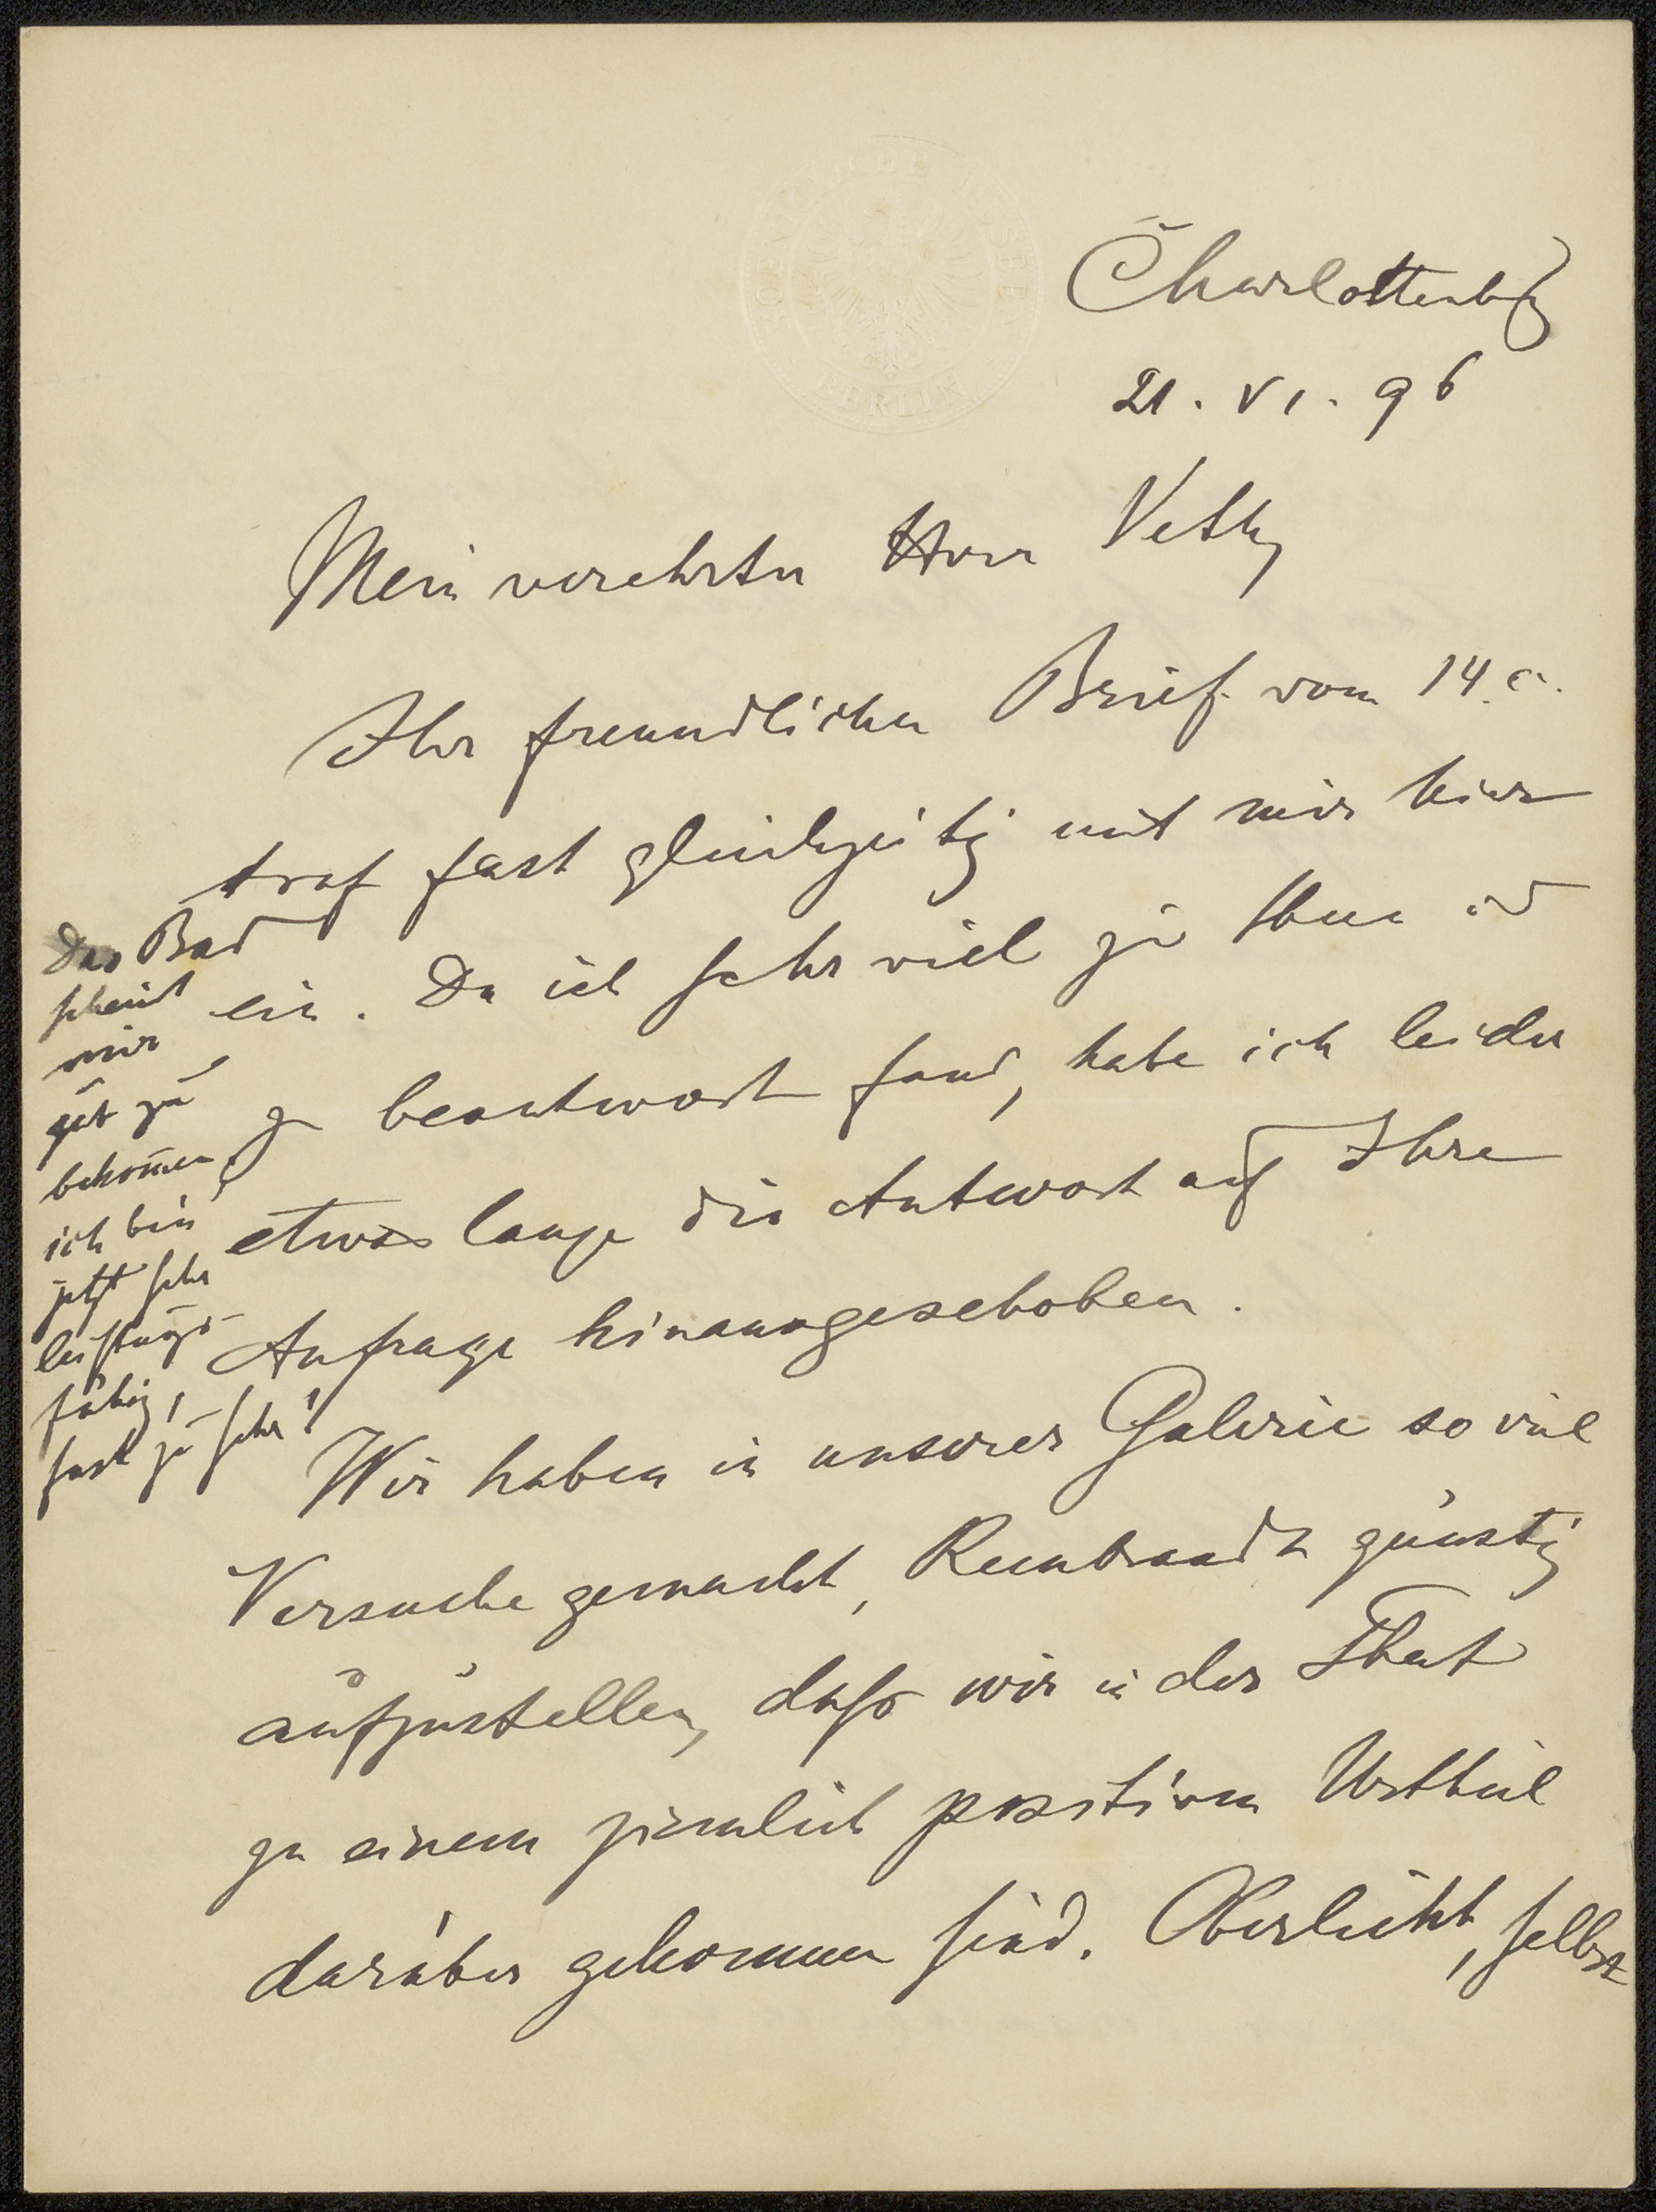 Charlottenbg
21. VI. 96
Mein verehrter Herr Veth,
Ihr freundlicher Brief vom 14. c.
traf fast gleichzeitig mit mir hier
ein. Da ich sehr viel zu thun
zu beantwort fand, habe ich leider
etwas lange die Antwort auf Ihre
Anfrage hinausgeschoben.
Wir haben in unserer Galerie so viel
Versuche gemacht, Rembrandt günstig
aufzustellen, dass wir in der That
zu einem ziemlich positiven Urtheil
darüber gekommen sind. Oberlicht, selbst
Das Bad
scheint
mir
gut zu
bekommen,
ich bin
jetzt sehr
leistungs-
fähig,
fast zu sehr!
BERLIN